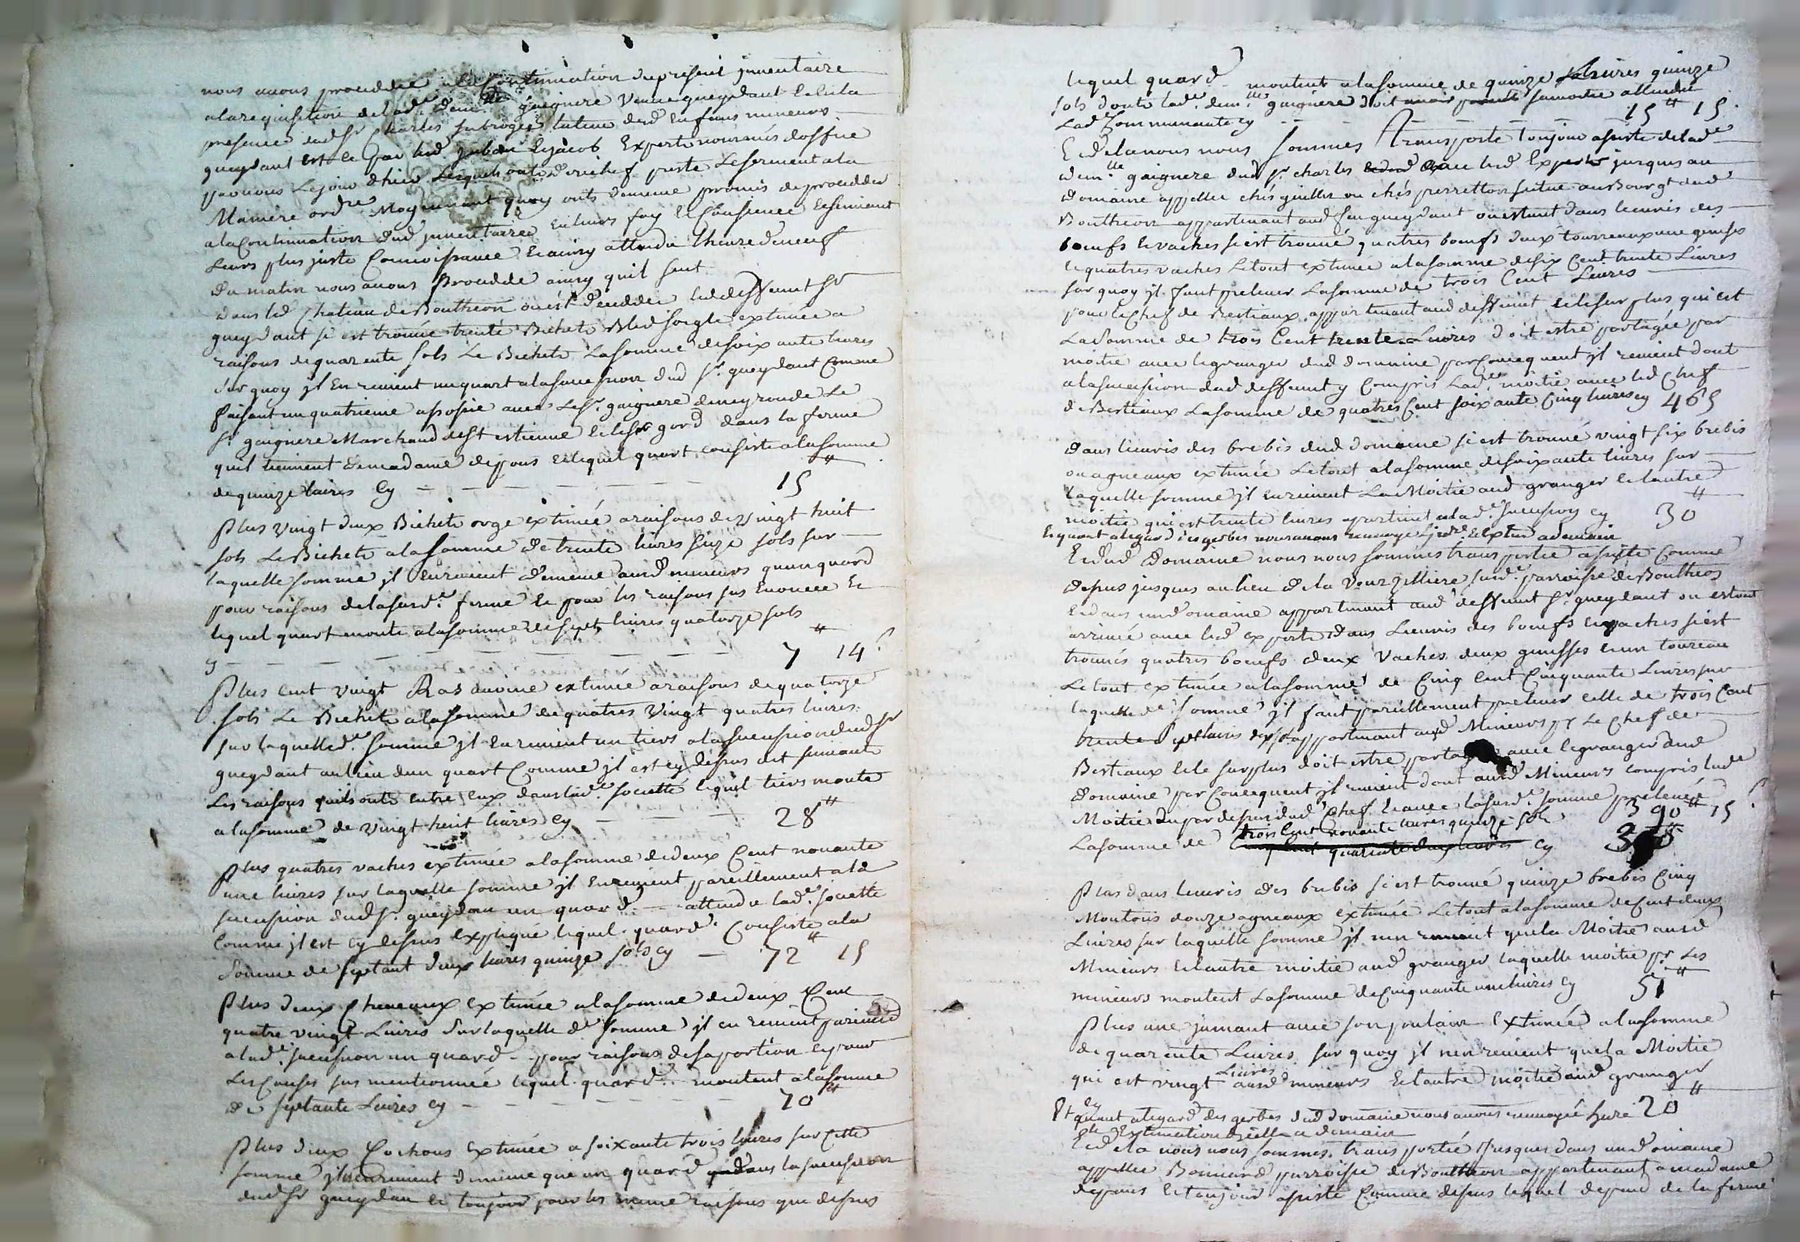 nous avons procedder a la Continuation du present jnventaire
a la requisition de lad.e dem.lle gaignere Veuve gueydant et en la
presence dud Sr Charles subrogé tuteur desd Enfans mineurs
gueydant et de par led. Juban Lejacob Experts nommés d'office
par nous Le jour d'hier Lesquels ont derechef preste Leserment a la
Maniere ord.re Moyennant quoy onts demême promis de procedder
a la Continuation dud jnventaire en leurs foy et Consience Et suivant
Leurs plus juste Connoissance Et ainsy attendu l'heure de neuf
du matin nous avons Procedde ainsy quil suit
dans led Chateau de Bouthéon ou est deceddé led deffeunt Sr
gueydant si est trouvée trente Bichets Bled soigle extimée a
raisons de quarente sols Le Bichets La somme de soixante livres
sur quoy jl En revient un quart a la sucession dud Sr. gueydant Comme
faisant un quatrieme associe avec Le Sr. gaignere de meyronde Le
Sr. gaignere Marchand de St estienne et le Sr gord dans la ferme
quil tiennent de madame depons et lequel quart consiste a la somme
de quinze livres Cy — — — — 15 "
Plus Vingt deux Bichets orge extimée a raisons de Vingt huit
sols Le Bichets a la somme de trente livres seize sols sur
laquelle somme jl en revient demême ausd mineurs qu'un quard
pour raisons de la susd.e ferme et pour les raisons sus Enoncée Et
lequel quart monte a la somme de sept livres quatorze sols
Cy — — — — 7 " 14 s
Plus Cent vingt Ras avoine extimée a raisons de quatorze
sols Le Bichet a la somme de quatres Vingt quatres livres
sur laquelle d.e somme jl en revient un tiers a la sucession dud Sr
gueydant au lieu d'un quart Comme jl est cy dessus dit suivant
Les raisons quils onts entre eux dans lad.e societté lequel tiers monte
a la somme de vingt huit livres Cy — — — 28 "
Plus quatres vaches extimée a la somme de deux Cent nonante
une livres sur laquelle somme jl en revient pareillement a la
sucession dud Sr. gueydan un quard — attendu lad.e societte
Comme jl est Cy dessus Expliqué lequel quard Consiste a la
somme de septant deux livres quinze sols Cy — 72 " 15
Plus deux Cheveaux extimée a la somme de deux Cent
quatre vingt Livres sur laquelle d.e somme jl en revient pareille
a lad.e sucession un quard — pour raisons de sa portion Et pour
Les Causes sus mentionnée lequel quard montent a la somme
de septante Livres Cy — — — 70 "
Plus deux Cochons extimée a soixante trois livres sur Cette
somme jl n'en revient demême que un quard dans la sucession
dud Sr gueydan Et toujour pour les même raisons que dessus
lequel quard montent a la somme de quinze livres quinze
sols dont lad.e dem.lle gaignere doit sa moitie attendu
Lad Communaute Cy — — 15 " 15
Et de la nous nous sommes Transporte toujour assiste de lad.e
dem.lle gaignere dud Sr. charles avec led Experts jusques au
domaine appelle chés guillet ou chés perretton situe au Bourgt dud
Bouthéon appartenant aud feu gueydant ou estant dans lecuris des
boeufs Et vaches si est trouvé quatres boeufs deux tourreaux une genisse
Et quatres vaches Le tout extimée a la somme de six Cent trente Livres
sur quoy jl faut prelever La somme de trois Cent Livres
pour le Chef de Bestiaux appartenant aud deffeunt et le sur plus qui est
La somme de trois Cent trente Livres doit estre partagée par
moitie avec le granger dud domaine par Consequent jl revient dont
a la sucession dud deffeunt y Compris Lad.e moitie avec led Chef
de Bestiaux La somme de quatres Cent soixante Cinq livres Cy 465
dans lecuris des brebis dud domaine si est trouvé vingt six brebis
ou agneaux extimée Le tout a la somme de soixante livres sur
laquelle somme jl en revient La Moitie aud granger et l'autre
moitie qui est trente livres apartient a lad.e sucession Cy 30 "
Et quant a legard des gerbes nous avons renvoye a demain
Et dud domaine nous nous sommes transportée assiste Comme
dessus jusques au lieu de la Vourzelliere susd.e parroisse de Bouthéon
Et dans un domaine appartenant aud deffeunt Sr. gueydant ou estant
arrivée avec led experts dans Lecuris des boeufs Et vaches si est
trouvés quatres boeufs deux Vaches deux genisses Et un toureau
Le tout extimée a la somme de Cinq Cent Cinquante Livres sur
laquelle d.e somme jl faut pareillement prelever celle de trois Cent
trente sept livres dix sols appartenant aud Mineurs pr Le Chef de
Bestiaux Et le surplus doit estre partagé avec le granger dud
domaine par Consequent jl revient dont ausd Mineurs compris lad.e
Moitie du par dessus dud Chef Et avec la susd.e somme prelevée
La somme de trois Cent nonante livres quinze sols Cy 390 " 15 s
Plus dans lecuris des brebis si est trouvé quinze brebis Cinq
Moutons douze agneaux extimée Le tout a la somme de Cent deux
Livres sur laquelle somme jl n'en revient que la Moitie ausd
Mineurs et l'autre moitie aud granger laquelle moitie pr. Les
mineurs montent La somme de Cinquante une livres Cy 51 "
Plus une jumant avec son poulain Extimée a la somme
de quarente Livres sur quoy jl n'en revient que la Moitie
qui est vingt Livres ausd mineurs Et l'autre moitie aud granger
Cy 20 "
Et quant a legard des gerbes dud domaine nous avons renvoyée
Extimation a demain
Et de la nous nous sommes transportée jusques dans un domaine
appellée Bonnard parroisse de Bouthéon appartenant a madame
depons et toujour assiste Comme dessus lequel depend de la ferme